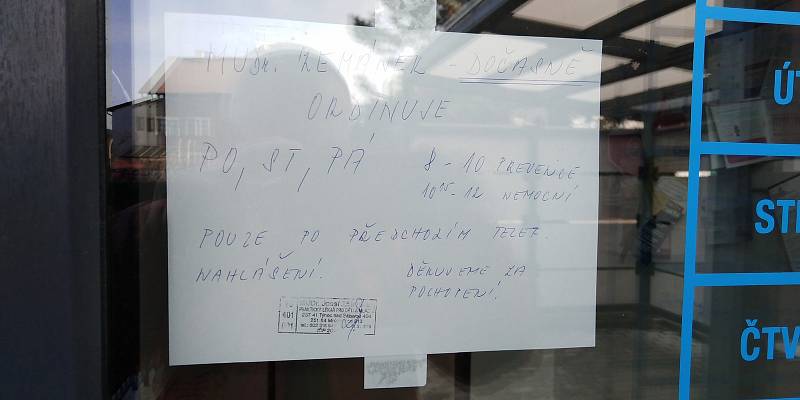 MUDr. ZEMÁNEK - DOČASNĚ
ORDINUJE
PO, ST, PÁ
8 - 10 PREVENCE
10¹⁵- 12 NEMOCNÍ
POUZE PO PŘEDCHOZÍM TELEF.
NAHLÁŠENÍ.
DĚKUJEME ZA
POCHOPENÍ!
MUDr. Josef
PRAKTICKÝ LÉKAŘ PRO DĚTI A
257 41 Týnec nad Sázavou
ÚT
STŘ
ČTV